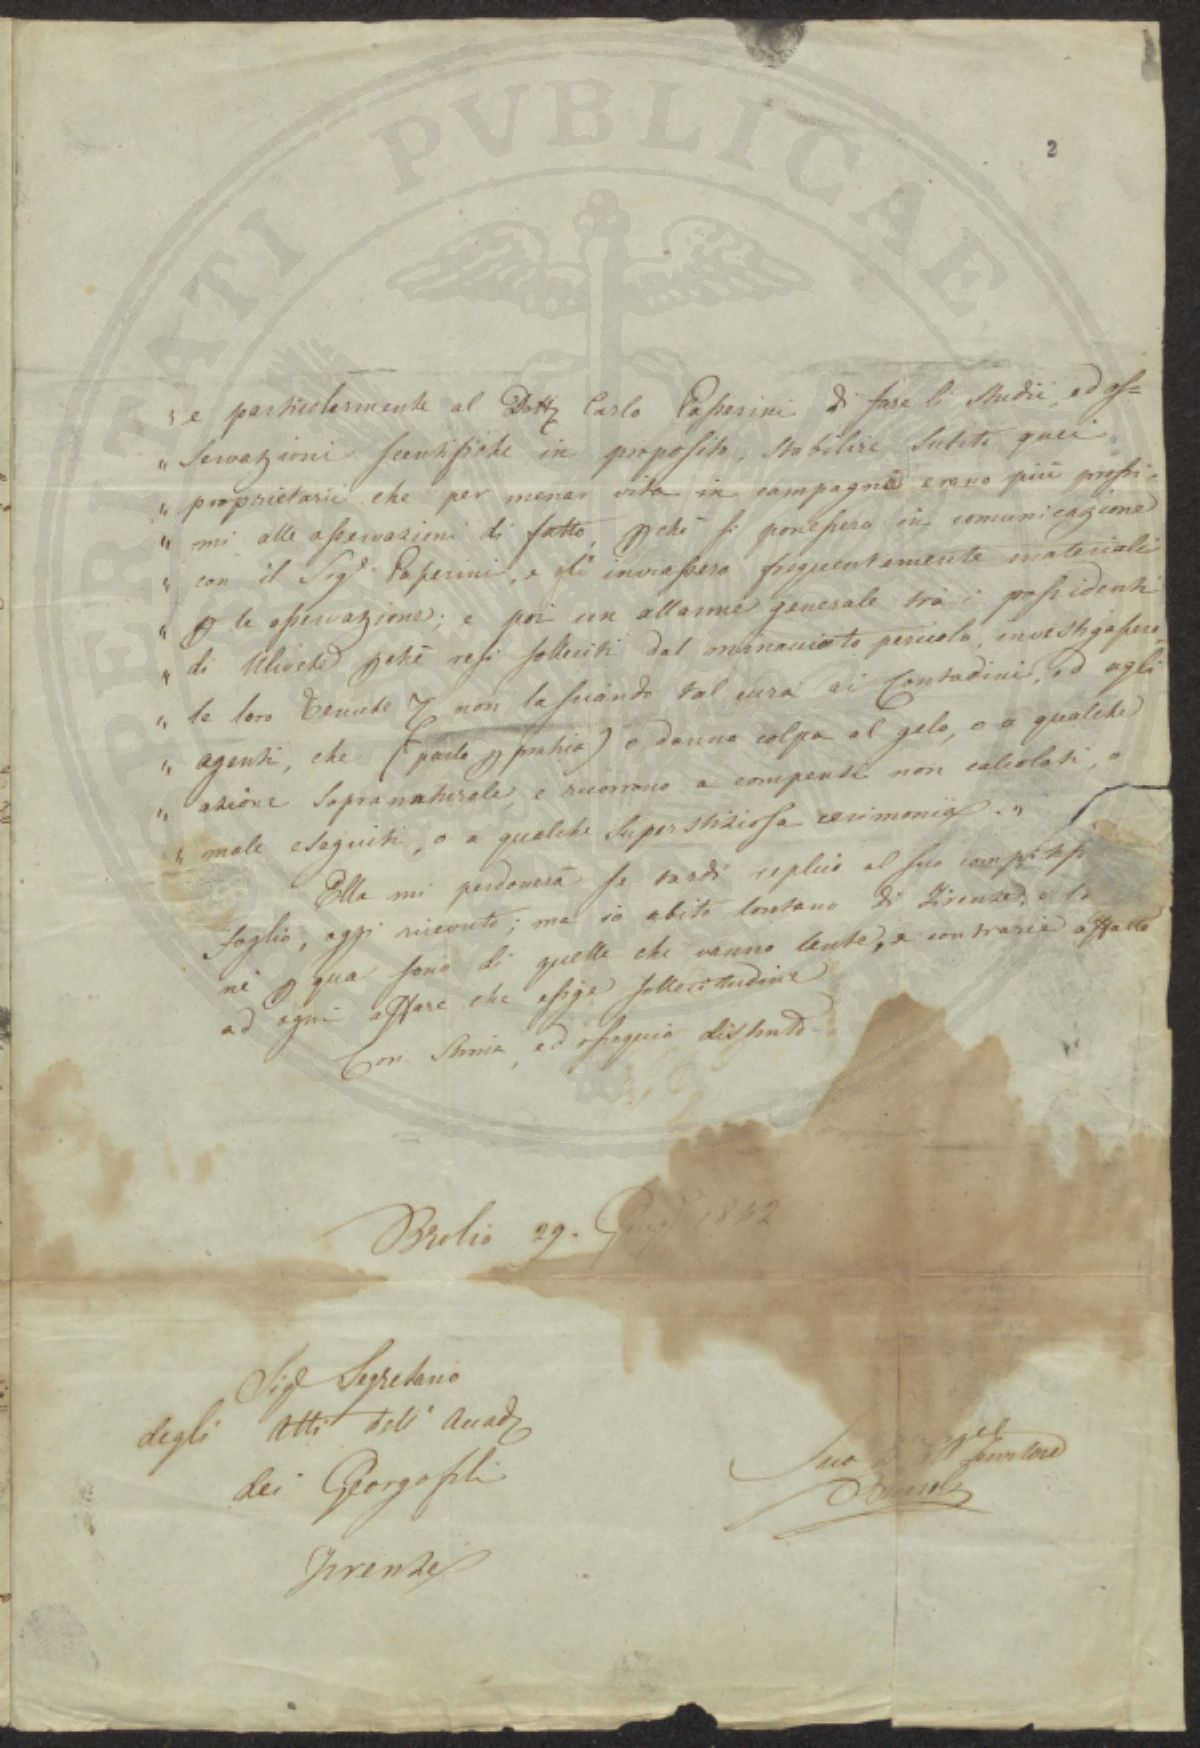 PERITATI PVBLICAE
2
" e particolarmente al Dott. Carlo Passerini di fare li studii, ed os=
" servazioni scentifiche in proposito, stabilire subito quei
" proprietarii che per menar vita in campagna erano più prossi-
" mi alle osservazioni di fatto, pchè si ponessero in comunicazione
" con il Sigr. Passerini, e gli inviassero frequentemente materiali
" p le osservazione; e poi un allarme generale trà i possidenti
" di Uliveti pchè resi solleciti dal minacciato pericolo, investigassero
" le loro Tenute, non lasciando tal cura ai Contadini, ed agli
" agenti, che (parlo p pratica) o danno colpa al gelo, o a qualche
" azione sopranaturale, e ricorrono a compensi non calcolati, o
" male eseguiti, o a qualche superstiziosa cerimonia. "
Ella mi perdonerà se tardi replico al suo
foglio, oggi ricevuto; ma io abito lontano di Firenze, e le
ne p qua sono di quelle che vanno lente, e contrarie affatto
ad ogni affare che esige sollecitudine
Con stima, ed ossequio distinto
Brolio 29. Giugo 1842
Sigr Segretario
degli Atti dell' Accad
dei Georgofili
Firenze
Suo Servitore